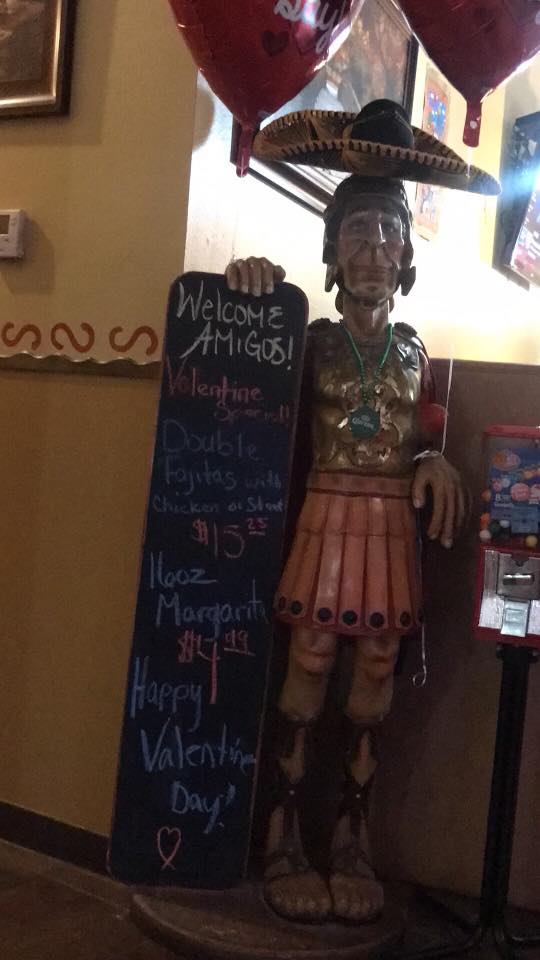 Day!
Welcome
AMiGOS!
Valentine
Special!!
Double
Fajitas with
Chicken or Steak
$15.25
16oz
Margarita
$4.99
Happy
Valentine
Day!